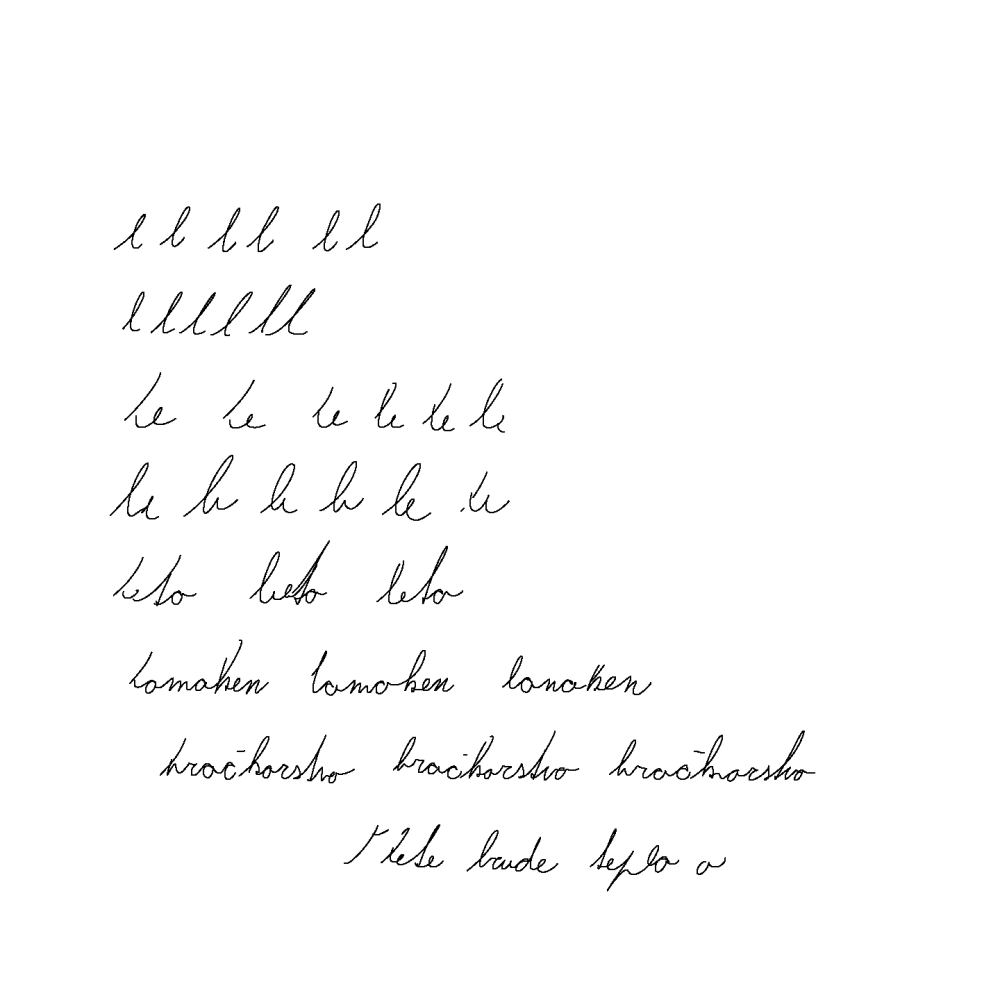 l l l l l l
l l l l l l
le le le le le le
le le le le le le
leto leto leto
lamaken lamoken lanaken
hračkarstvo hračkarstvo hračkarstvo
V lete bude teplo a